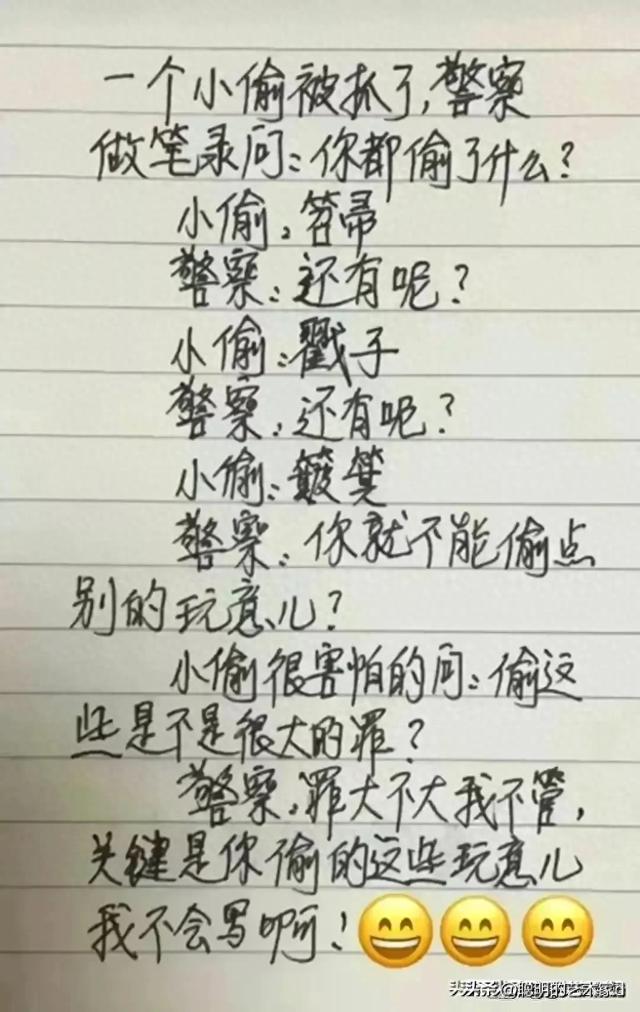 一个小偷被抓了,警察
做笔录问:你都偷了什么?
小偷:笤帚
警察:还有呢?
小偷:戳子
警察:还有呢?
小偷:簸箕
警察:你就不能偷点
别的玩意儿?
小偷很害怕的问:偷这
些是不是很大的罪?
警察:罪大不大我不管,
关键是你偷的这些玩意儿
我不会写啊!